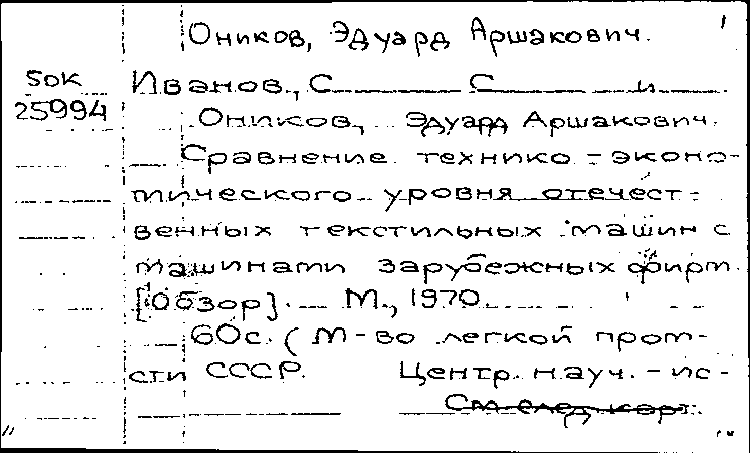 Оников, Эдуард Аршакович.
50К
25994
Иванов, С С и
Оников, Эдуард Аршакович.
Сравнение технико-эконо-
мического уровня отечест-
венных текстильных машин с
машинами зарубежных фирм.
[Обзор]. М., 1970.
60с. (М-во легкой пром-
сти СССР. Центр. науч.-ис-
См след карт.